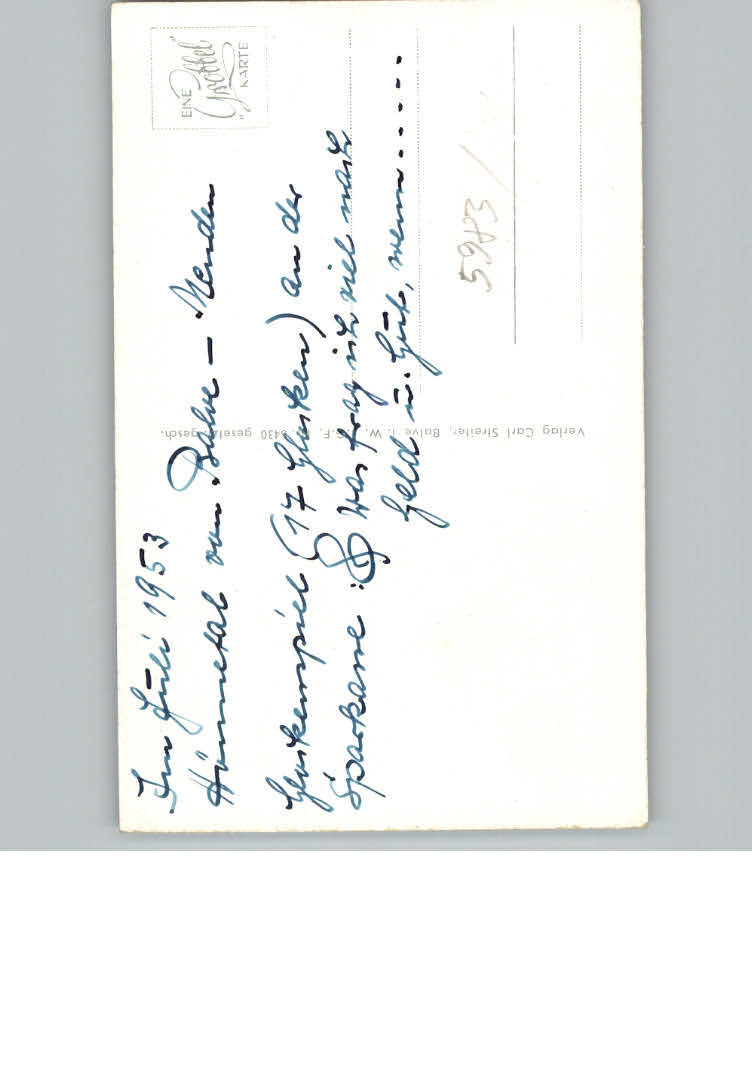 Im Juli 1953
Hönnetal von Balve – Menden
Glockenspiel (17 Glocken) an der
Sparkasse: Was frag ich viel nach
Geld u. Gut, wenn......
EINE
"Grobbel"
KARTE
Verlag Carl Streiter, Balve i. W. 5430 gesetzl. gesch.
5983